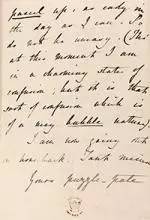 pencil up, as early in
the day as I can. So
do not be uneasy. (Tho'
at this moment I am
in a charming state of
confusion; but oh it is that
sort of confusion which is
of a very bubble nature).
I am now going out
on horseback. I
Yours Puzzle-pate